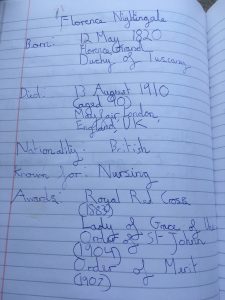 Florence Nightingale
Born: 12 May 1820
Florence, Grand
Duchy of Tuscany
Died: 13 August 1910
(aged 90)
Mayfair, London,
England, UK
Nationality: British
Known for: Nursing
Awards: Royal Red Cross
(1883)
Lady of Grace of the
Order of St John
(1904)
Order of Merit
(1907)